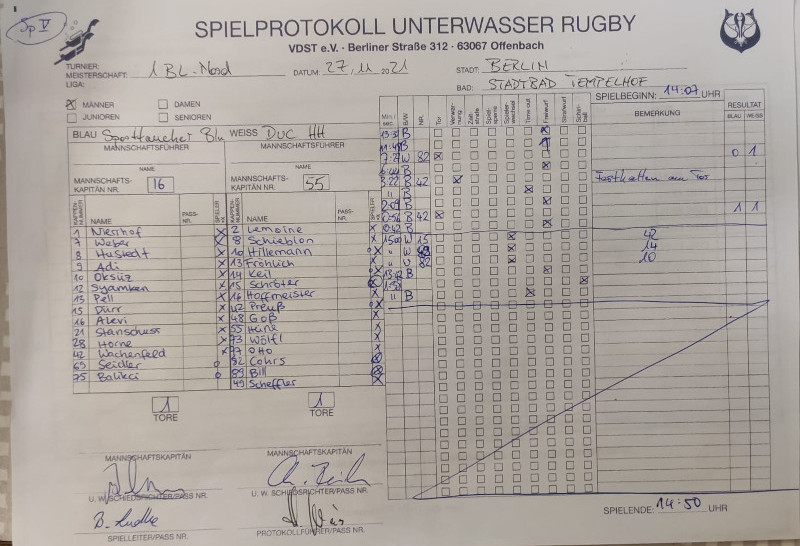 Sp V
SPIELPROTOKOLL UNTERWASSER RUGBY
VDST e.V. · Berliner Straße 312 · 63067 Offenbach
TURNIER:
MEISTERSCHAFT: 1 BL-Nord DATUM: 27, 11 2021 STADT: BERLIN
LIGA: BAD: STADTBAD TEMPELHOF
SPIELBEGINN: 14:07 UHR
MÄNNER DAMEN
JUNIOREN SENIOREN
BLAU Sporttaucher Bln WEISS DUC HH
MANNSCHAFTSFÜHRER MANNSCHAFTSFÜHRER
NAME NAME
MANNSCHAFTS-KAPITÄN NR. 16 MANNSCHAFTS-KAPITÄN NR. 55
KAPPEN-NUMMER NAME PASS-NR. SPIELER KAPPEN-NUMMER NAME PASS-NR. SPIELER
1 Nierhof 2 Lemoine
7 Weber 8 Schieblon
8 Hustedt 10 Hillemann
9 Adi 13 Fröhlich
10 Oksüz 14 Keil
12 Syamken 15 Schröter
13 Pell 16 Hoffmeister
15 Dürr 42 Preuß
16 Alevi 48 Goß
21 Stanschuss 55 Heine
28 Horne 73 Wölfl
42 Wachenfeld 77 Otto
69 Seidler 82 Cohrs
75 Balikci 89 Bill
49 Scheffler
1 TORE 1 TORE
MANNSCHAFTSKAPITÄN MANNSCHAFTSKAPITÄN
U. W. SCHIEDSRICHTER/PASS NR. U. W. SCHIEDSRICHTER/PASS NR.
SPIELLEITER/PASS NR. PROTOKOLLFÜHRER/PASS NR.
Min./sec. B/W NR. Tor Verwarnung Zeitstrafe Spielsperre Spielerwechsel Time out Freiwurf Strafwurf Schiedsball BEMERKUNG RESULTAT
BLAU WEISS
B
B
W 82 0 1
B
B 42 Festhalten am Tor
" B
B
0:56 B 42 1 1
B
15:00 W 15 42
" W 14
" 82 10
B
" B
SPIELENDE: 14:50 UHR